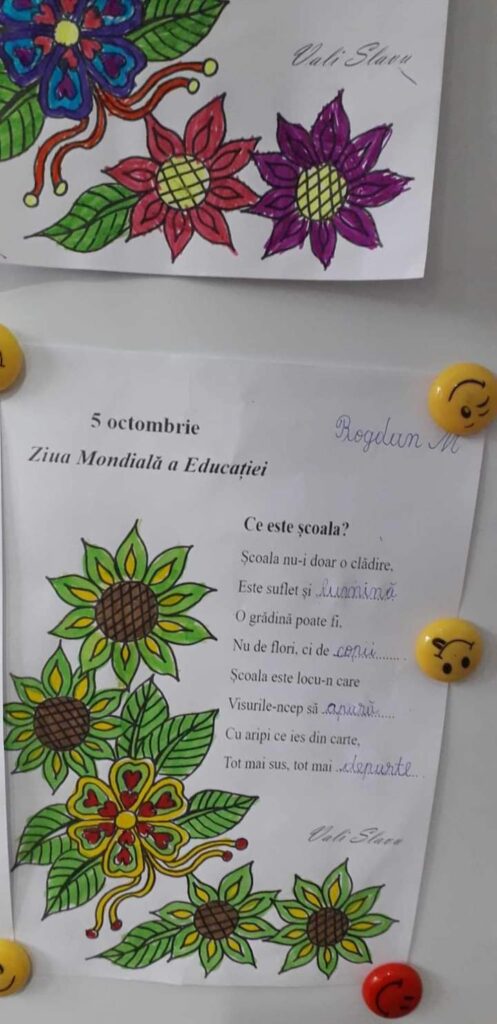 Vali Slavu
5 octombrie
Bogdan M
Ziua Mondială a Educației
Ce este școala?
Școala nu-i doar o clădire,
Este suflet și lumină
O grădină poate fi,
Nu de flori, ci de copii........
Școala este locu-n care
Visurile-ncep să apară.....
Cu aripi ce ies din carte,
Tot mai sus, tot mai departe..
Vali Slavu